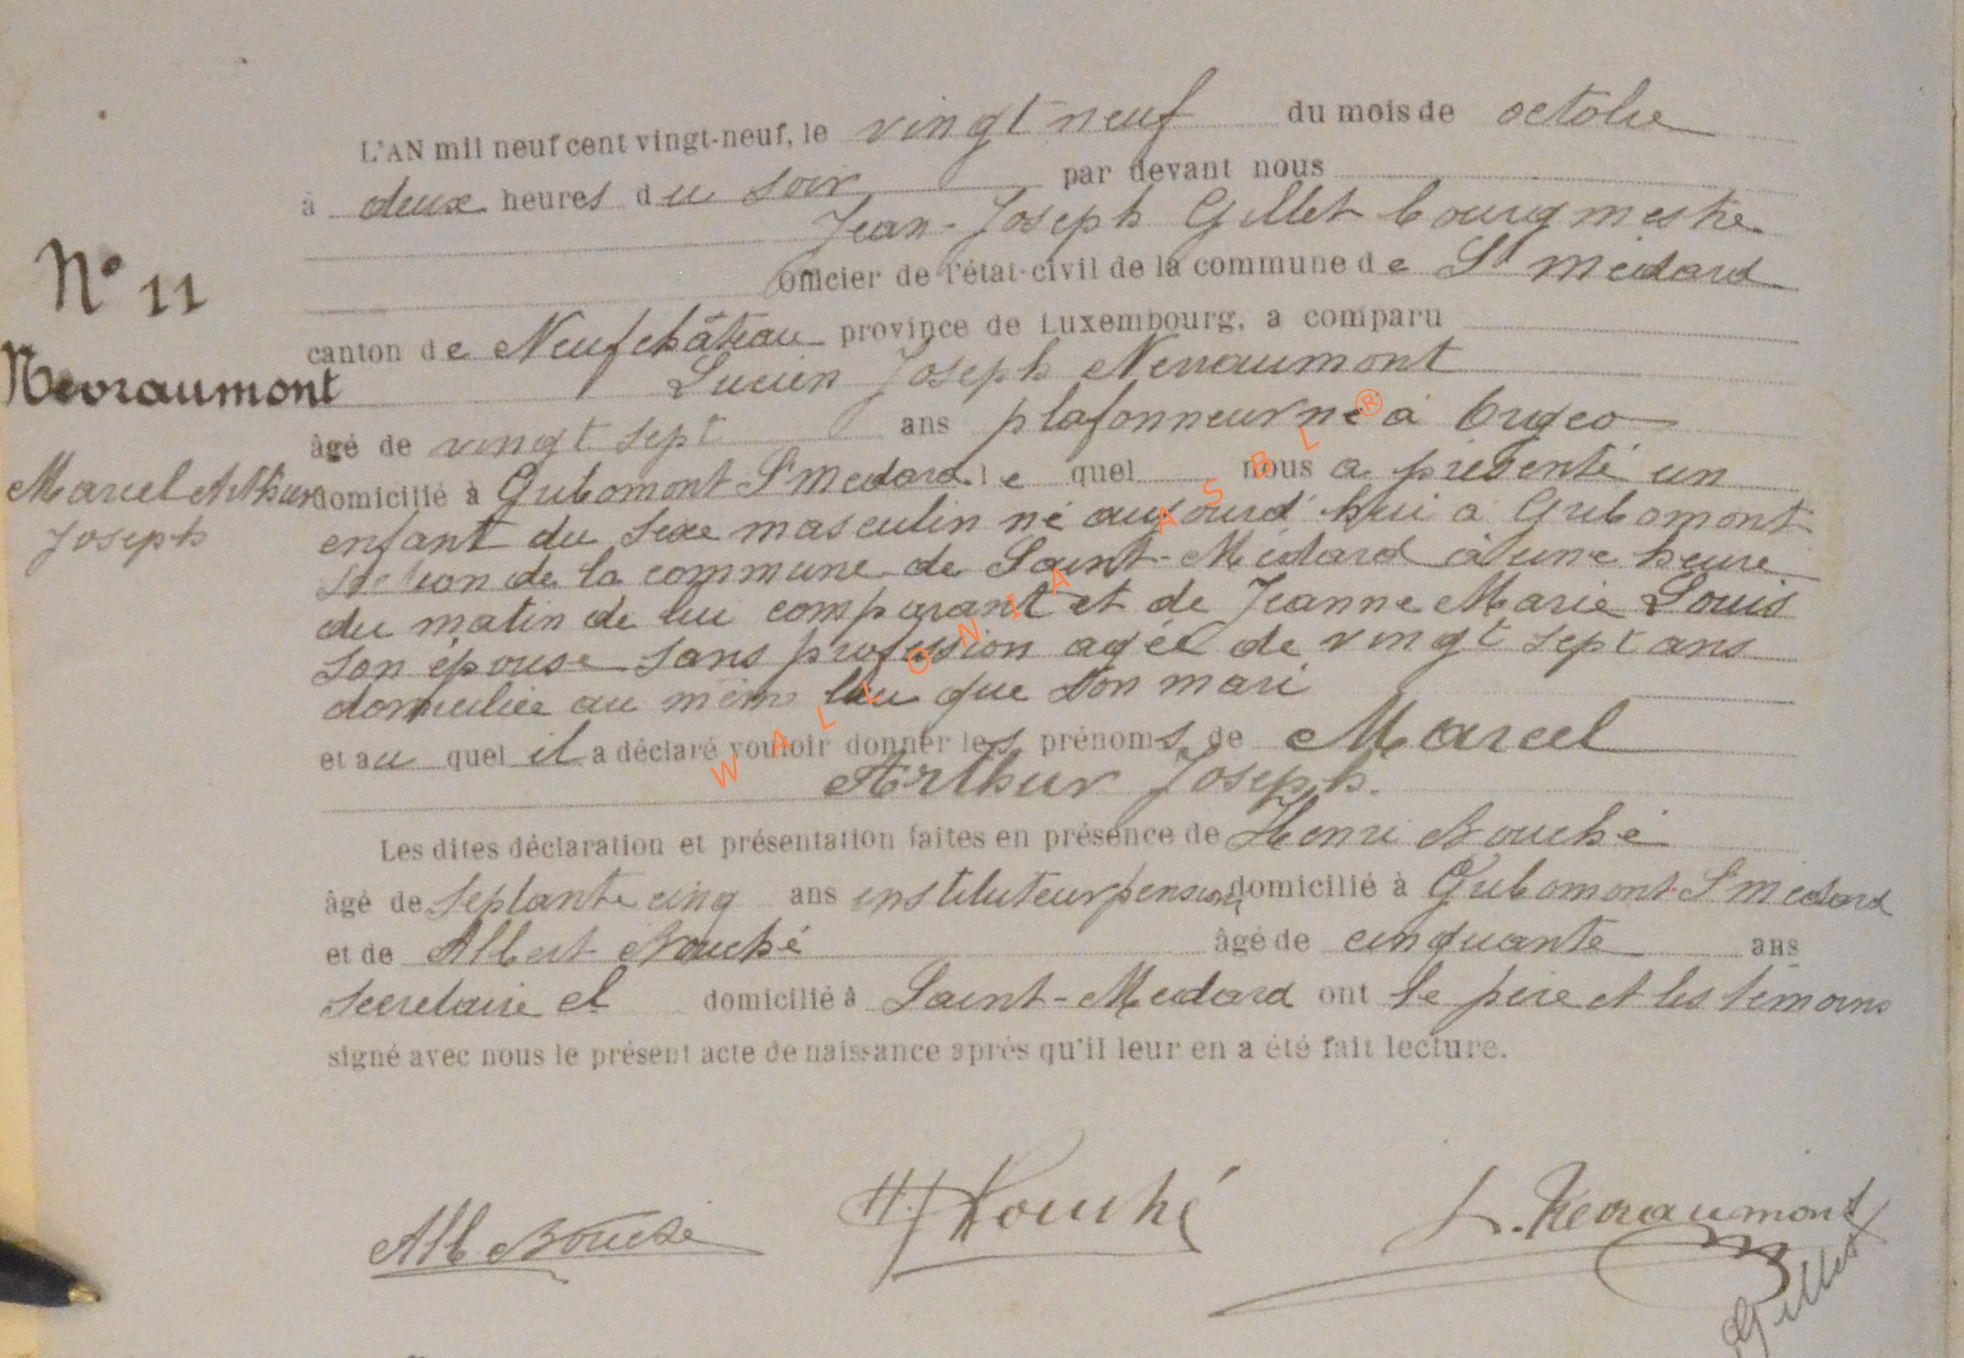 L'AN mil neuf cent vingt-neuf, le vingt neuf du mois de octobre
à deux heures du soir par devant nous
Jean-Joseph Gillet bourgmestre
N° 11
officier de l'état-civil de la commune de St Médard
canton de Neufchâteau province de Luxembourg, a comparu
Nevraumont
Lucien Joseph Nevraumont
âgé de vingt sept ans plafonneur né à Orgeo
Marcel Arthur
domicilié à Gribomont St Médard le quel nous a présenté un
Joseph
enfant du sexe masculin né aujourd'hui à Gribomont
section de la commune de Saint-Médard à une heure
du matin de lui comparant et de Jeanne Marie Louis
son épouse sans profession agée de vingt sept ans
domiciliée au même lieu que son mari
et au quel il a déclaré vouloir donner les prénoms de Marcel
Arthur Joseph.
Les dites déclaration et présentation faites en présence de Henri Bouché
âgé de septante cinq ans instituteur pensionné domicilié à Gribomont-St Médard
et de Albert Bouché âgé de cinquante ans
secrétaire cl domicilié à Saint-Médard ont le père et les témoins
signé avec nous le présent acte de naissance après qu'il leur en a été fait lecture.
Alb Bouché
H. Bouché
L. Nevraumont
Gillet
WALLONIA ASBL ®